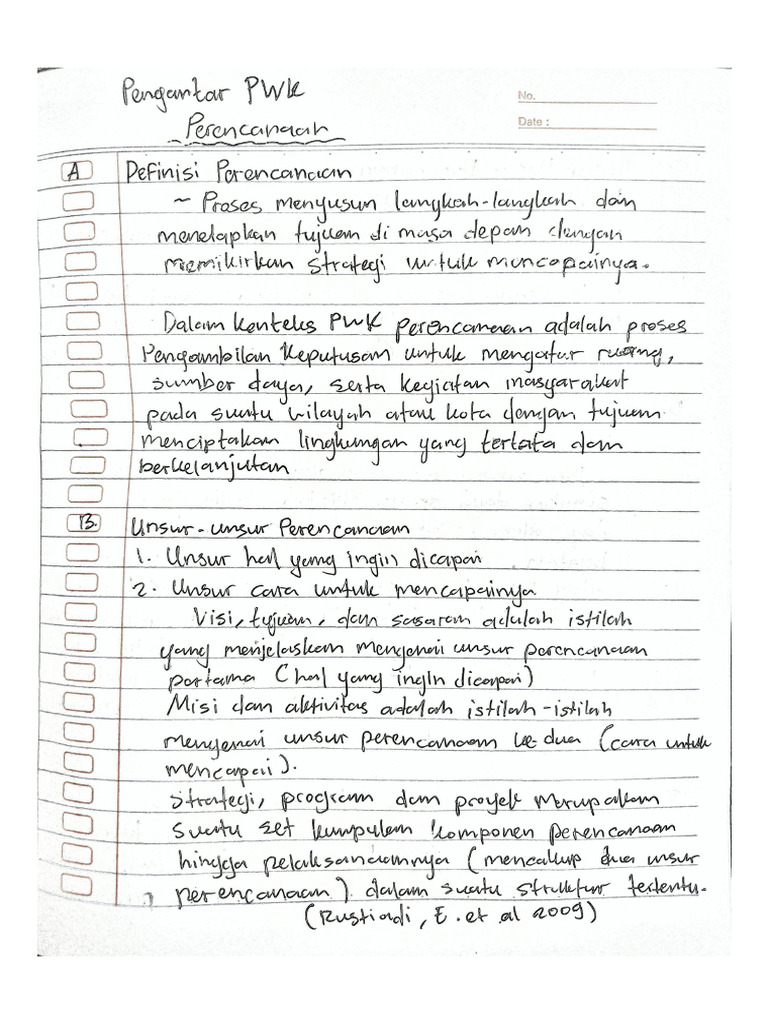 Pengantar PWK
No.
Perencanaan
Date :
A Definisi Perencanaan
~ Proses menyusun langkah-langkah dan
menetapkan tujuan di masa depan dengan
memikirkan strategi untuk mencapainya.
Dalam konteks PWK perencanaan adalah proses
Pengambilan keputusan untuk mengatur ruang,
sumber daya, serta kegiatan masyarakat
pada suatu wilayah atau kota dengan tujuan
menciptakan lingkungan yang tertata dan
berkelanjutan
B. Unsur-unsur Perencanaan
1. Unsur hal yang ingin dicapai
2. Unsur cara untuk mencapainya
Visi, tujuan, dan sasaran adalah istilah
yang menjelaskan mengenai unsur perencanaan
pertama (hal yang ingin dicapai)
Misi dan aktivitas adalah istilah-istilah
mengenai unsur perencanaan ke-dua (cara untuk
mencapai).
Strategi, program dan proyek merupakan
suatu set kumpulan komponen perencanaan
hingga pelaksanaannya (mencakup dua unsur
perencanaan) dalam suatu struktur tertentu.
(Rustiadi, E. et al 2009)